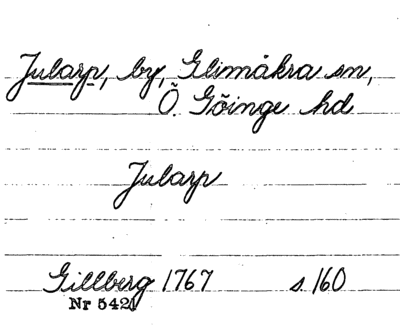 Jularp, by, Glimåkra sn,
Ö. Göinge hd
Jularp
Gillberg 1767 s 160
Nr 5421